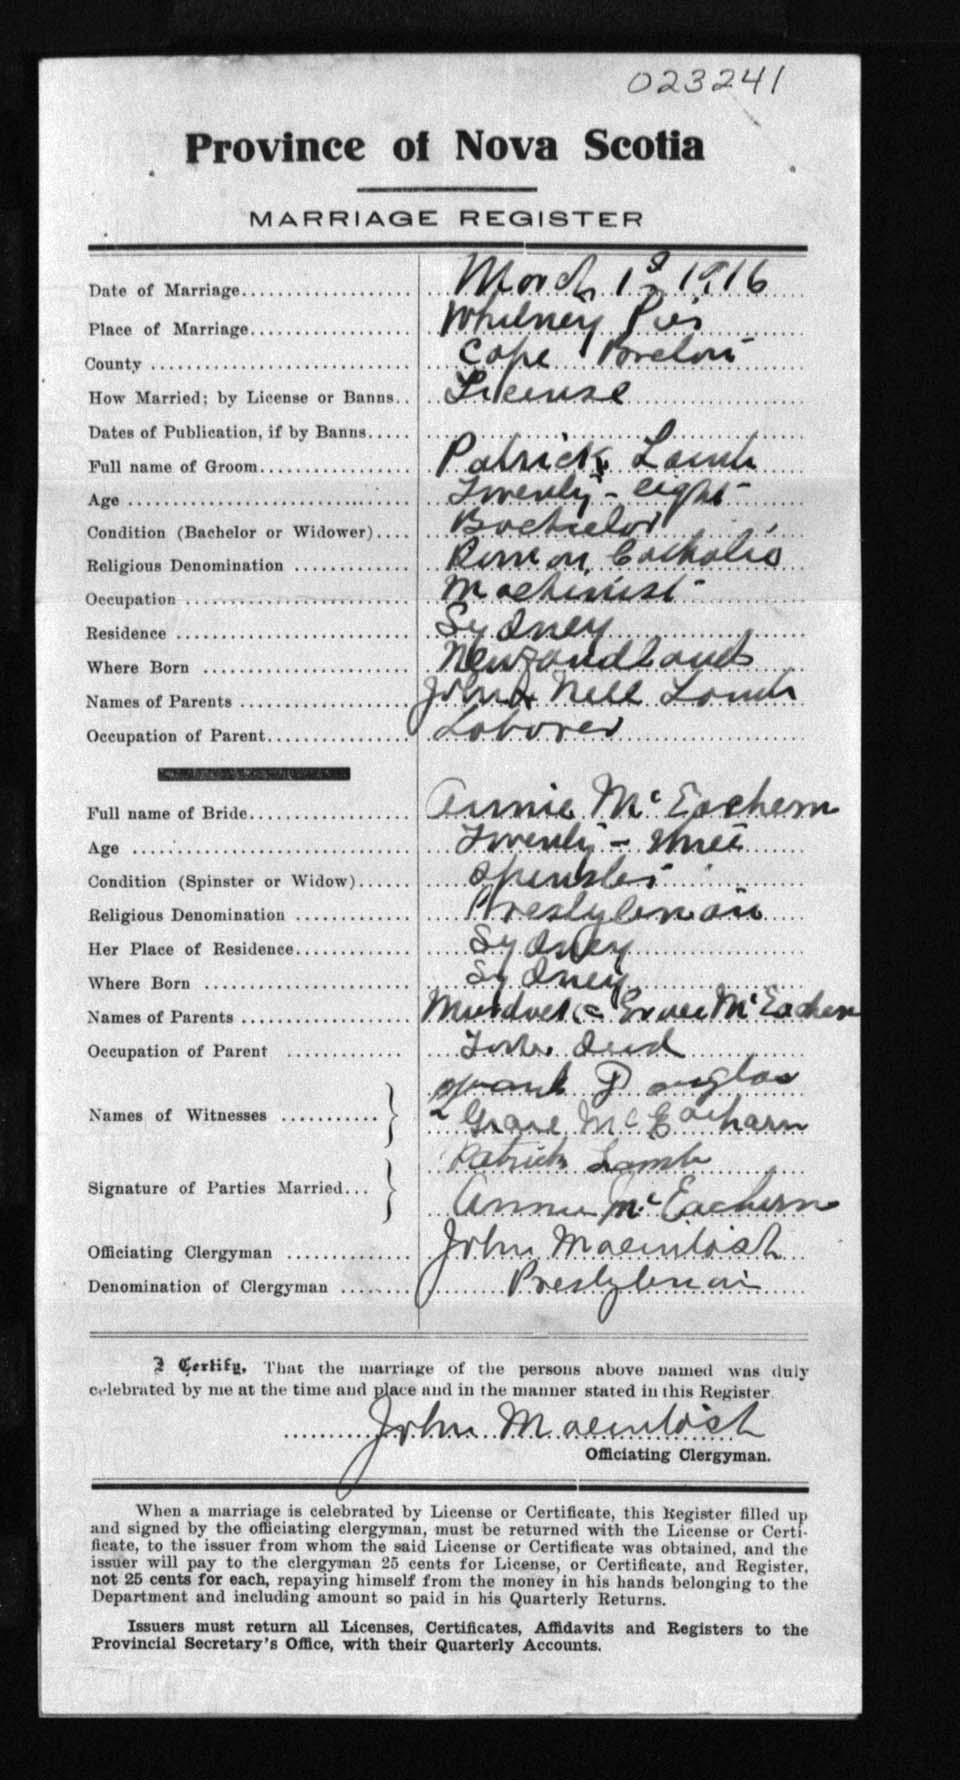 023241
Province of Nova Scotia
MARRIAGE REGISTER
Date of Marriage March 1st 1916
Place of Marriage Whitney Pier
County Cape Breton
How Married; by License or Banns License
Dates of Publication, if by Banns
Full name of Groom Patrick Lamb
Age Twenty-eight
Condition (Bachelor or Widower) Bachelor
Religious Denomination Roman Catholic
Occupation Machinist
Residence Sydney
Where Born Newfoundland
Names of Parents John & Nell Lamb
Occupation of Parent Laborer
Full name of Bride Annie McEachern
Age Twenty-three
Condition (Spinster or Widow) Spinster
Religious Denomination Presbyterian
Her Place of Residence Sydney
Where Born Sydney
Names of Parents Murdoch & McEachern
Occupation of Parent Dead
Names of Witnesses Frank Douglas
Grace McEacharn
Signature of Parties Married Patrick Lamb
Annie McEachern
Officiating Clergyman John Macintosh
Denomination of Clergyman Presbyterian
I Certify, That the marriage of the persons above named was duly
celebrated by me at the time and place and in the manner stated in this Register
John Macintosh
Officiating Clergyman.
When a marriage is celebrated by License or Certificate, this Register filled up
and signed by the officiating clergyman, must be returned with the License or Certi-
ficate, to the issuer from whom the said License or Certificate was obtained, and the
issuer will pay to the clergyman 25 cents for License, or Certificate, and Register,
not 25 cents for each, repaying himself from the money in his hands belonging to the
Department and including amount so paid in his Quarterly Returns.
Issuers must return all Licenses, Certificates, Affidavits and Registers to the
Provincial Secretary's Office, with their Quarterly Accounts.